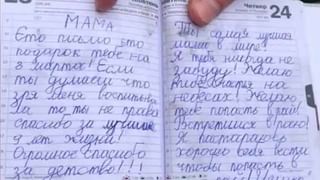 МАМА
Ето письмо ето
подарок тебе на
8 марта! Если
ты думаеш что
зря меня воспитывала
то ты не права
спасибо за лучшие
9 лет жизни!
Огромное спасибо
за детство!!!
Четверг
24
Ты самая лучшая
мама в мире!
Я тебя никогда не
забуду! Желаю
на
небесах! Желаю
тебе попасть в рай!
Встретимся в раю!
Я постараюсь
хорошо себя вести
чтобы попасть в